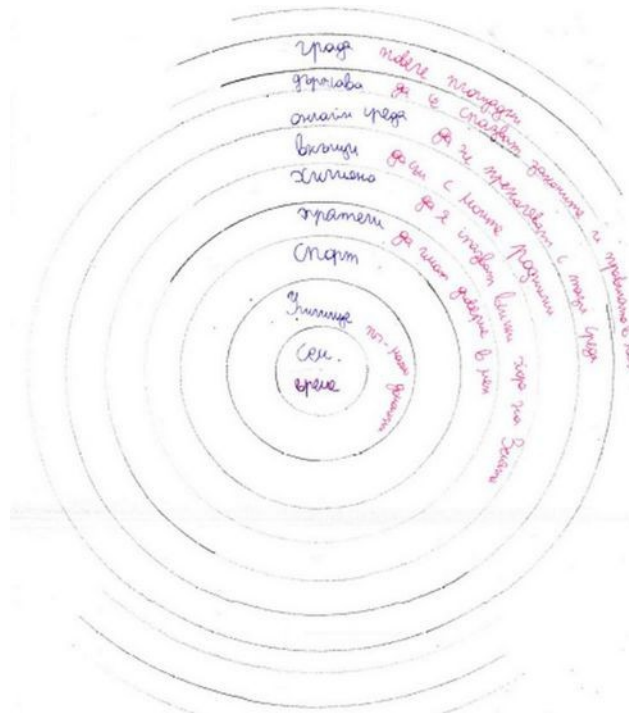 града повече площадки
държава да се спазват законите и правилата в
онлайн среда да не прекаляват с тази среда
вкъщи да съм с моите роднини
хигиена да я спазват всички хора на Земята
приятели да имат доверие в мен
спорт
Училище по-малко
Сем.
време